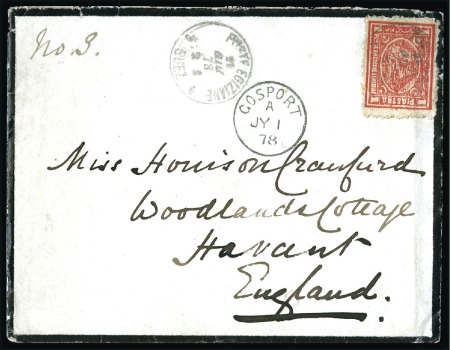 No. 3.
POSTE EGIZIANE
78
GOSPORT
A
JY 1
78
PIASTRA
Miss Honison Cranfurd
Woodlands Cottage
Havant
England.